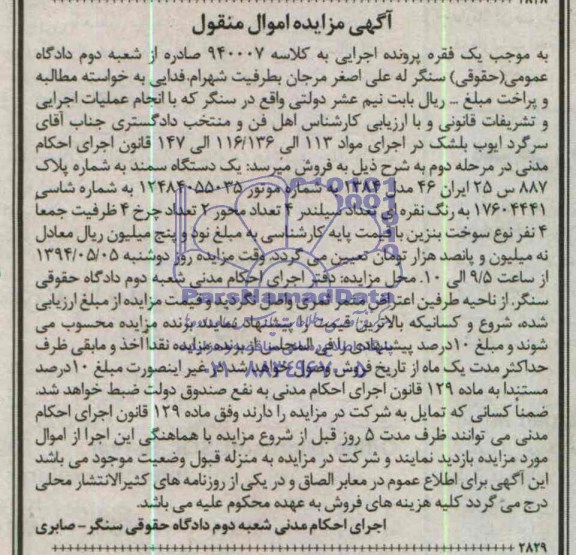 ۱۸۱۸
آگهی مزایده اموال منقول
به موجب یک فقره پرونده اجرایی به کلاسه ۹۴۰۰۰۷ صادره از شعبه دوم دادگاه
عمومی(حقوقی) سنگر له علی اصغر مرجان بطرفیت شهرام فدایی به خواسته مطالبه
و پراخت مبلغ ... ریال بابت نیم عشر دولتی واقع در سنگر که با انجام عملیات اجرایی
و تشریفات قانونی و با ارزیابی کارشناس اهل فن و منتخب دادگستری جناب آقای
سرگرد ایوب بلشک در اجرای مواد ۱۱۳ الی ۱۱۶/۱۳۶ الی ۱۴۷ قانون اجرای احکام
مدنی در مرحله دوم به شرح ذیل به فروش میرسد: یک دستگاه سمند به شماره پلاک
۸۸۷ س ۲۵ ایران ۴۶ مدل ۱۳۸۴ با شماره موتور ۱۲۴۸۴۰۵۵۰۳۵ به شماره شاسی
۱۷۶۰۴۴۴۱ به رنگ نقره ای تعداد سیلندر ۴ تعداد محور ۲ تعداد چرخ ۴ ظرفیت جمعاً
۴ نفر نوع سوخت بنزین با قیمت پایه کارشناسی به مبلغ نود و پنج میلیون ریال معادل
نه میلیون و پانصد هزار تومان تعیین می گردد. وقت مزایده روز دوشنبه ۱۳۹۴/۰۵/۰۵
از ساعت ۹/۵ الی ۱۰. محل مزایده: دفتر اجرای احکام مدنی شعبه دوم دادگاه حقوقی
سنگر. از ناحیه طرفین اعتراض موثر واصل نگردید و قیمت مزایده از مبلغ ارزیابی
شده، شروع و کسانیکه بالاترین قیمت را پیشنهاد نمایند برنده مزایده محسوب می
شوند و مبلغ ۱۰درصد پیشنهادی را فی المجلس از برنده مزایده نقدا اخذ و مابقی ظرف
حداکثر مدت یک ماه از تاریخ فروش وصول خواهد شد در غیر اینصورت مبلغ ۱۰درصد
مستندا به ماده ۱۲۹ قانون اجرای احکام مدنی به نفع صندوق دولت ضبط خواهد شد.
ضمنا کسانی که تمایل به شرکت در مزایده را دارند وفق ماده ۱۲۹ قانون اجرای احکام
مدنی می توانند ظرف مدت ۵ روز قبل از شروع مزایده با هماهنگی این اجرا از اموال
مورد مزایده بازدید نمایند و شرکت در مزایده به منزله قبول وضعیت موجود می باشد
این آگهی برای اطلاع عموم در معابر الصاق و در یکی از روزنامه های کثیرالانتشار محلی
درج می گردد کلیه هزینه های فروش به عهده محکوم علیه می باشد.
اجرای احکام مدنی شعبه دوم دادگاه حقوقی سنگر - صابری
۲۸۲۹
ParsNamadData